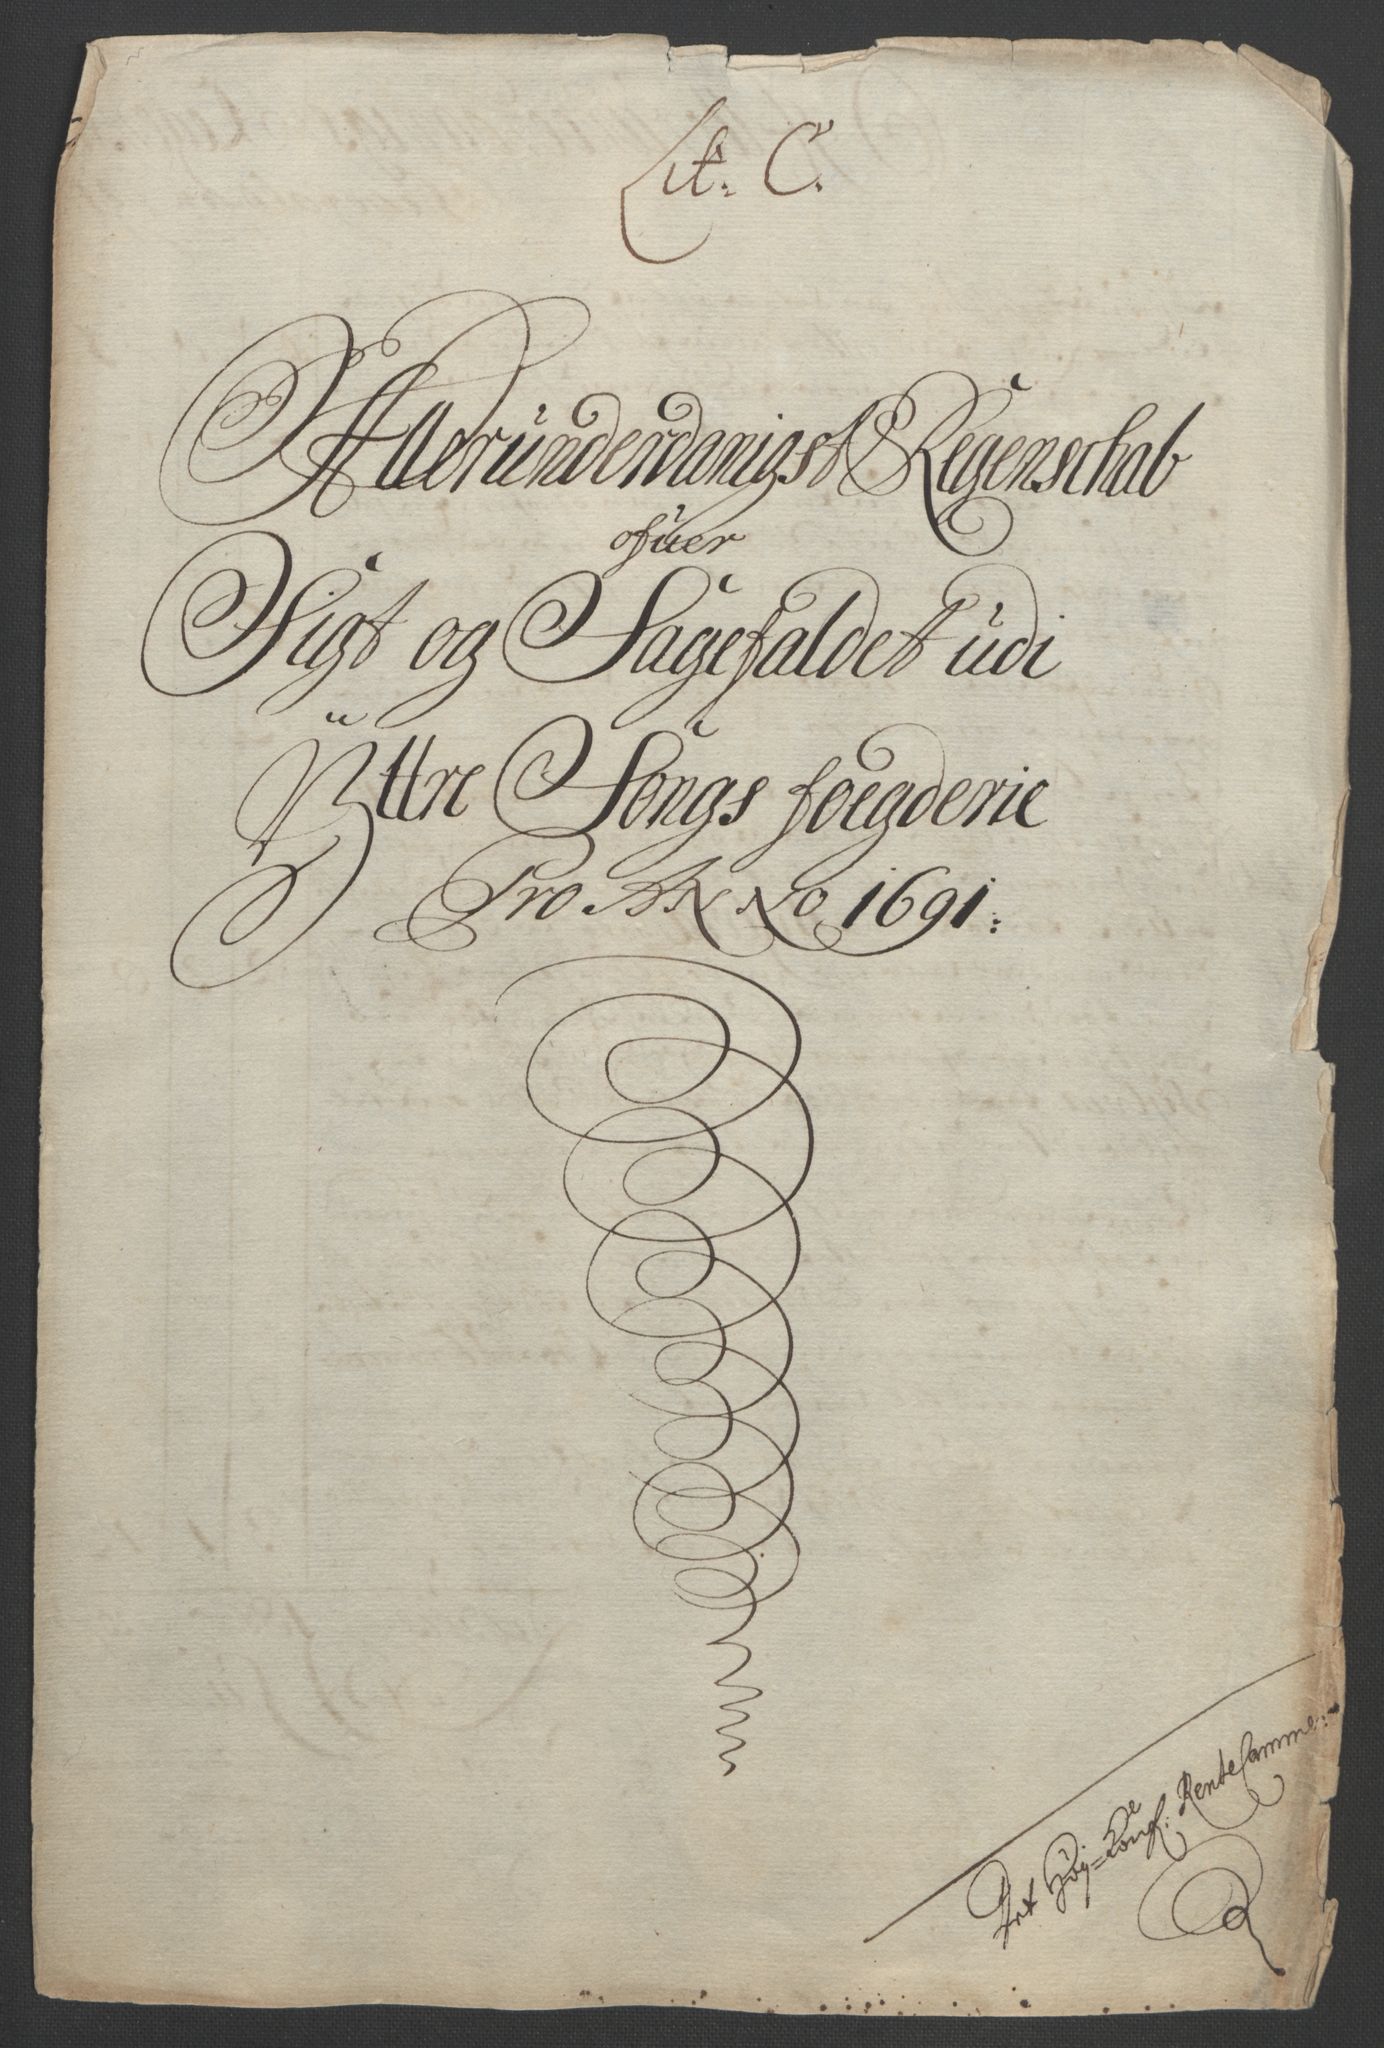 Lit. C.
Alleründerdanigst Regenschab
ofüer
Sigt og Sagefaldet üdi
Ÿttre Songs foegderie
Pro ANNO 1691:
Det Høy=Kongl: RenteCammer